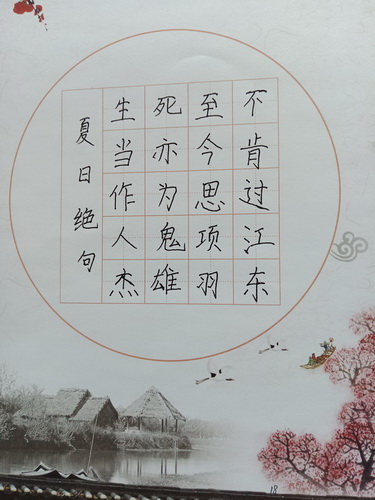 夏日绝句
生当作人杰
死亦为鬼雄
至今思项羽
不肯过江东
18